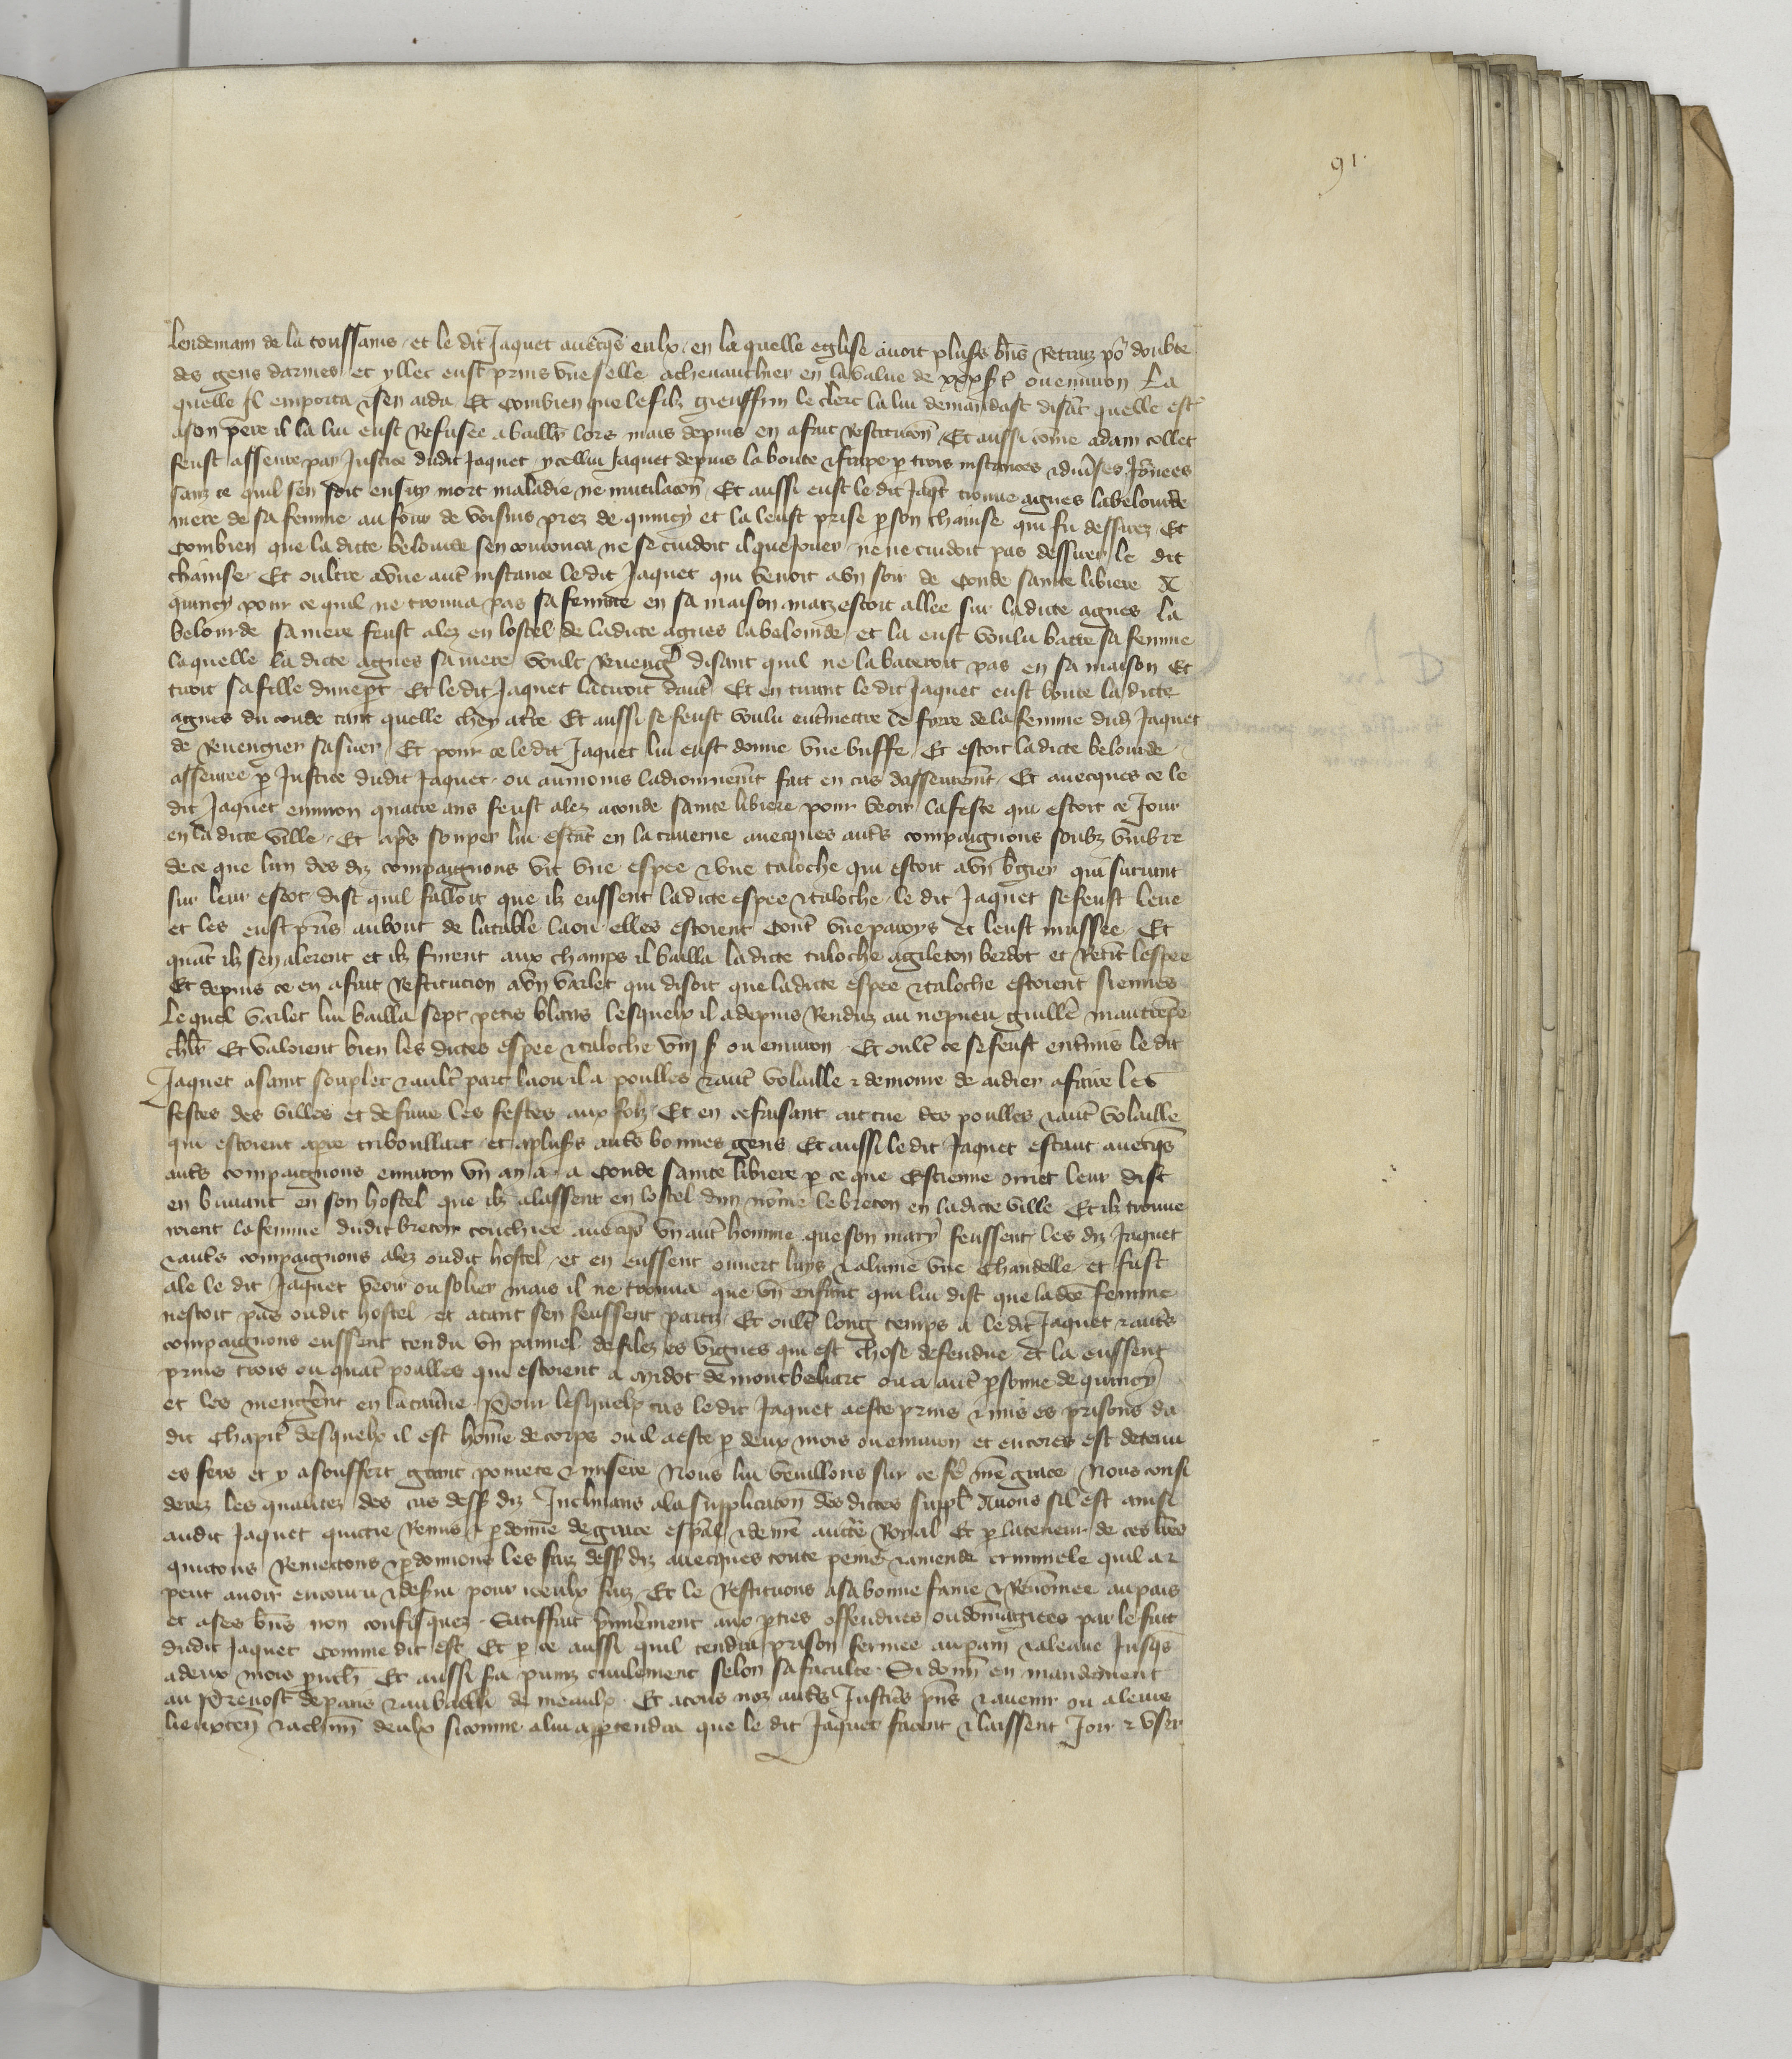 91.
lendemain de la toussains et le dit Jaquet avecqs eulx en la quelle eglise avoit plusrs bns retraiz por doubte
des gens darmes et yllec eust prins une selle a chevauchier en la value de xxx s t ou environ La
quelle il emporta & sen aida Et combien que le filz Gieuffrin le clerc la lui demandast disat quelle est
a son pere il la lui eust refusee a baillr lors mais depuis en a fait restitucon Et aussi come adam collet
feust asseure par justice dudit Jaquet ycellui Jaquet depuis la boute & frape p trois instances & divses jornees
sanz ce quil sen soit ensuy mort maladie ne mutilacon Et aussi eust le dit Jaqt trouve agnes la belourde
mere de sa femme au four de voisins prez de quincy et la leust prise p son chainse qui fu dessirez Et
combien que la dicte belourde sen courouca ne se cuidoit il que jouer ne ne cuidoit pas dessirer le dit
chainse Et oultre a une aut instance le dit Jaquet qui venoit a un soir de Conde sainte libiere a
quincy pour ce quil ne trouva pas sa femme en sa maison maiz estoit allee sur la dicte agnes la
belourde sa mere feust alez en lostel de ladicte agnes la belourde et la eust voulu batre sa femme
laquelle la dicte agnes sa mere voult revengr disant quil ne la bateroit pas en sa maison Et
tiroit sa fille dune pt Et le dit Jaquet la tiroit daut Et en tirant le dit Jaquet eust boute la dicte
agnes du coude tant quelle chey a tre Et aussi se feust voulu entmettre le frere de la femme dud Jaquet
de revengier sa suer Et pour ce le dit Jaquet lui eust donne une buffe Et estoit la dicte belourde
asseuree p justice dudit Jaquet ou au moins ladiournemt fait en cas dasseuremt Et avecques ce le
dit Jaquet environ quatre ans feust alez a conde sainte libiere pour veoir la feste qui estoit ce jour
en la dicte ville Et aprs souper lui estat en la taverne avecques auts compaignons soubz umbre
de ce que lun des diz compaignons vit une espee & une taloche qui estoit a un bgier qui
sur leur escot dist quil falloit que ilz eussent ladicte espee & taloche le dit Jaquet se feust leve
et les eust prins au bout de la table la ou elles estoient cont une paroys et leust mussee Et
quat ilz sen alerent et ilz furent aux champs il bailla ladicte taloche a gileton berdot et retit lespee
Et depuis ce en a fait restitucion a un varlet qui disoit que ladicte espee & taloche estoient siennes
le quel varlet lui bailla sept petis blans lesquelx il a depuis renduz au nepveu guille
chlr Et valoient bien les dictes espee & taloche viii s ou environ Et oult ce se feust entmis le dit
Jaquet a saint souplet & ault part la ou il a poulles & aut volaille & de aidier a faire les
festes des villes et de faire les festes aux folz Et en ce faisant ait tue des poulles & aut volaille
qui estoient a triboullart et a plusrs auts bonnes gens Et aussi le dit Jaquet estant avecqs
auts compaignons environ un an a a Conde sainte libiere p ce que Estienne leur dist
en buvant en son hostel que ilz alassent en lostel dun nome le breton en ladicte ville Et ilz trouve
roient la femme dudit breton couchiee avecqs un aut homme que son mary feussent les diz Jaquet
& auts compaignons alez oudit hostel et en eussent ouvert luys & alume une chandelle et fust
ale le dit Jaquet veoir ou solier mais il ne trouva que un enfant qui lui dist que la dce femme
nestoit pas oudit hostel et atant sen feussent partiz Et oult long temps a le dit Jaquet & auts
compaignons eussent tendu un pannel de filez es vignes qui est chose defendue et la eussent
prins trois ou quat poulles qui estoient a de montbeliart ou a aut psonne de quincy
et les mengerent en la tavne Pour lesquelx cas le dit Jaquet a este prins & mis es prisons du
dit Chapit desquelx il est home de corps ou il a este p deux mois ou environ et encores est detenu
es fers et y a souffert grant povrete & misere Nous lui veuillons sur ce fe nre grace Nous consi
derez les quantez des cas dess diz Inclinans a la supplicacon des dictes suppl Avons sil est ainsi
audit Jaquet quictie remis & pdonne de grace espal & de nre aucte Royal Et p la teneur de ces ltres
quitons remettons & pdonnons les faiz dess diz avecques toute peine & amende criminele quil a &
peut avoir encouru & desvi pour iceulx faiz Et le restituons a sa bonne fame & renomee au pais
et a ses bns non confisquez Satiffait pmierement aux pties offendues ou domagiees par le fait
dudit Jaquet comme dit est Et p ce aussi quil tendra prison fermee au pain & a leaue jusqs
a deux mois Et aussi sa puniz civilement selon sa faculte Si donn en mandement
au Prevost de paris & au bailli de meaulx Et a tous noz auts justiciers pns & avenir ou a leurs
lieuxten & a chun deulx si comme a lui apptendra que le dit Jaquet facent & laissent joir & user